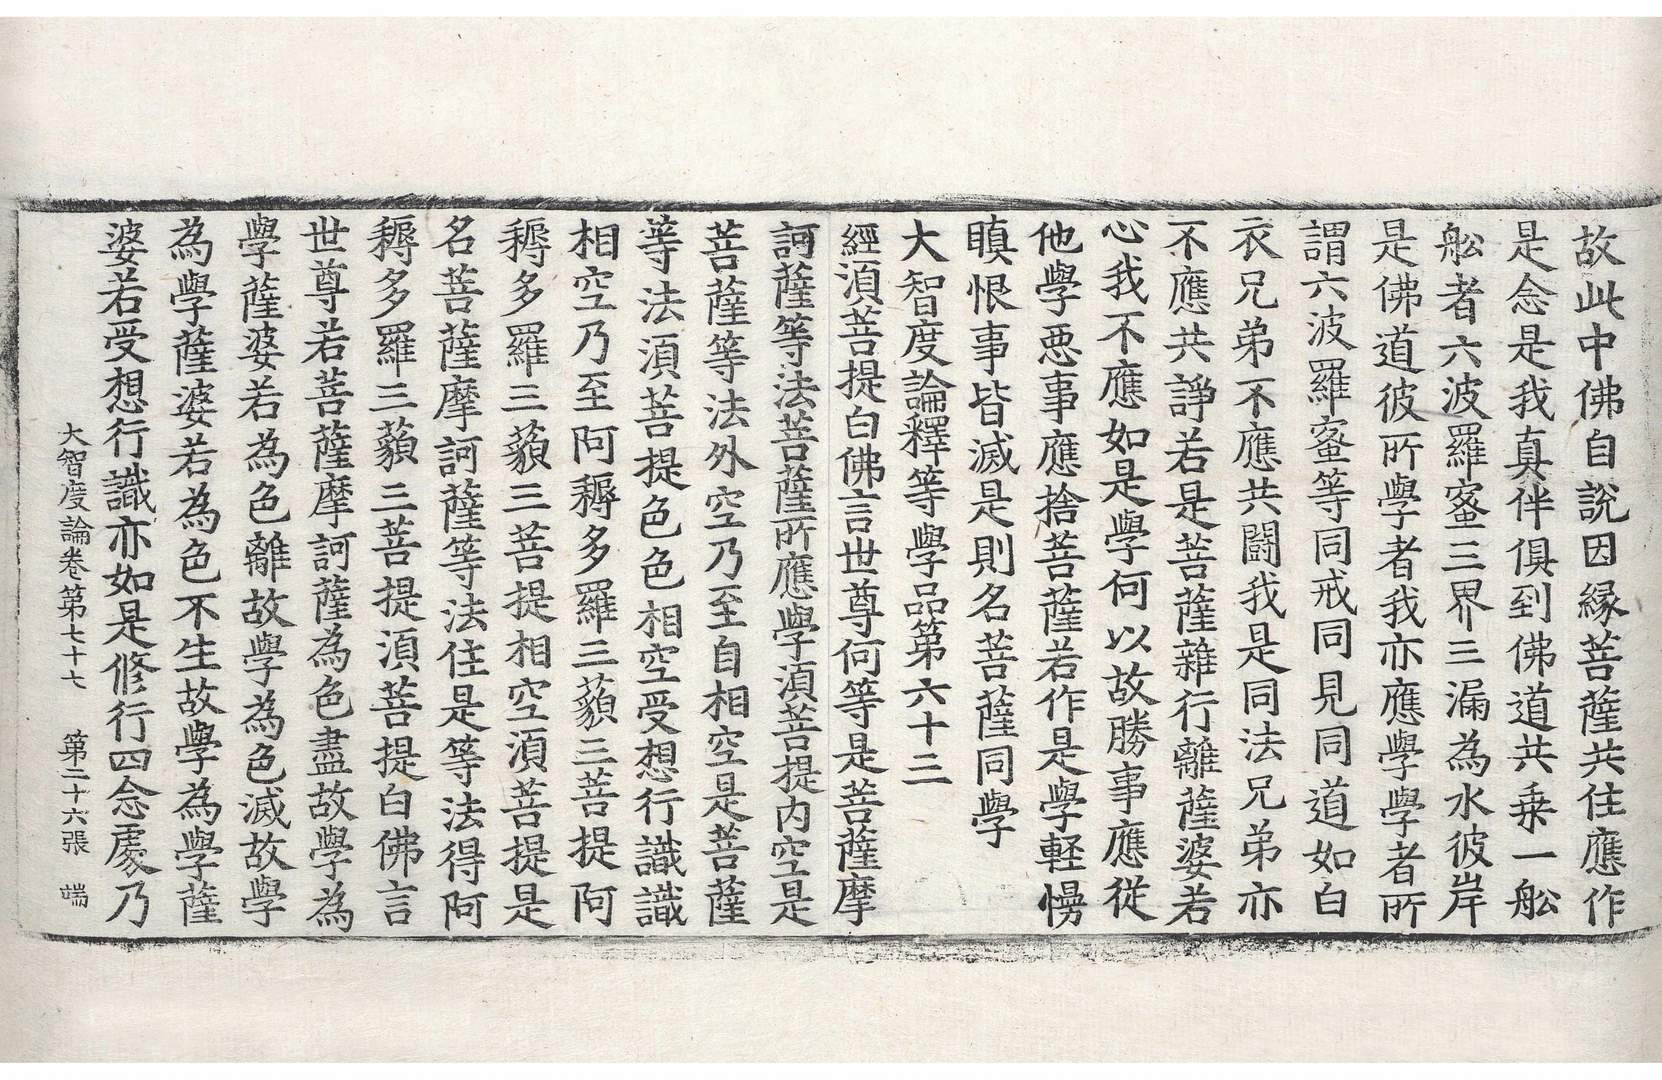 故此中佛自說因縁菩薩共住應作
是念是我真伴俱到佛道共乗一舩
舩者六波羅蜜三界三漏為水彼岸
是佛道彼所學者我亦應學學者所
謂六波羅蜜等同戒同見同道如白
衣兄弟不應共鬪我是同法兄弟亦
不應共諍若是菩薩雜行離薩婆若
心我不應如是學何以故勝事應從
他學悪事應捨菩薩若作是學軽慢
瞋恨事皆滅是則名菩薩同學
大智度論釋等學品第六十三
經湏菩提白佛言世尊何等是菩薩摩
訶薩等法菩薩所應學湏菩提内空是
菩薩等法外空乃至自相空是菩薩
等法湏菩提色色相空受想行識識
相空乃至阿耨多羅三藐三菩提阿
耨多羅三藐三菩提相空湏菩提是
名菩薩摩訶薩等法住是等法得阿
耨多羅三藐三菩提湏菩提白佛言
世尊若菩薩摩訶薩為色盡故學為
學薩婆若為色離故學為色滅故學
為學薩婆若為色不生故學為學薩
婆若受想行識亦如是修行四念處乃
大智度論卷第七十七 第二十六張 端